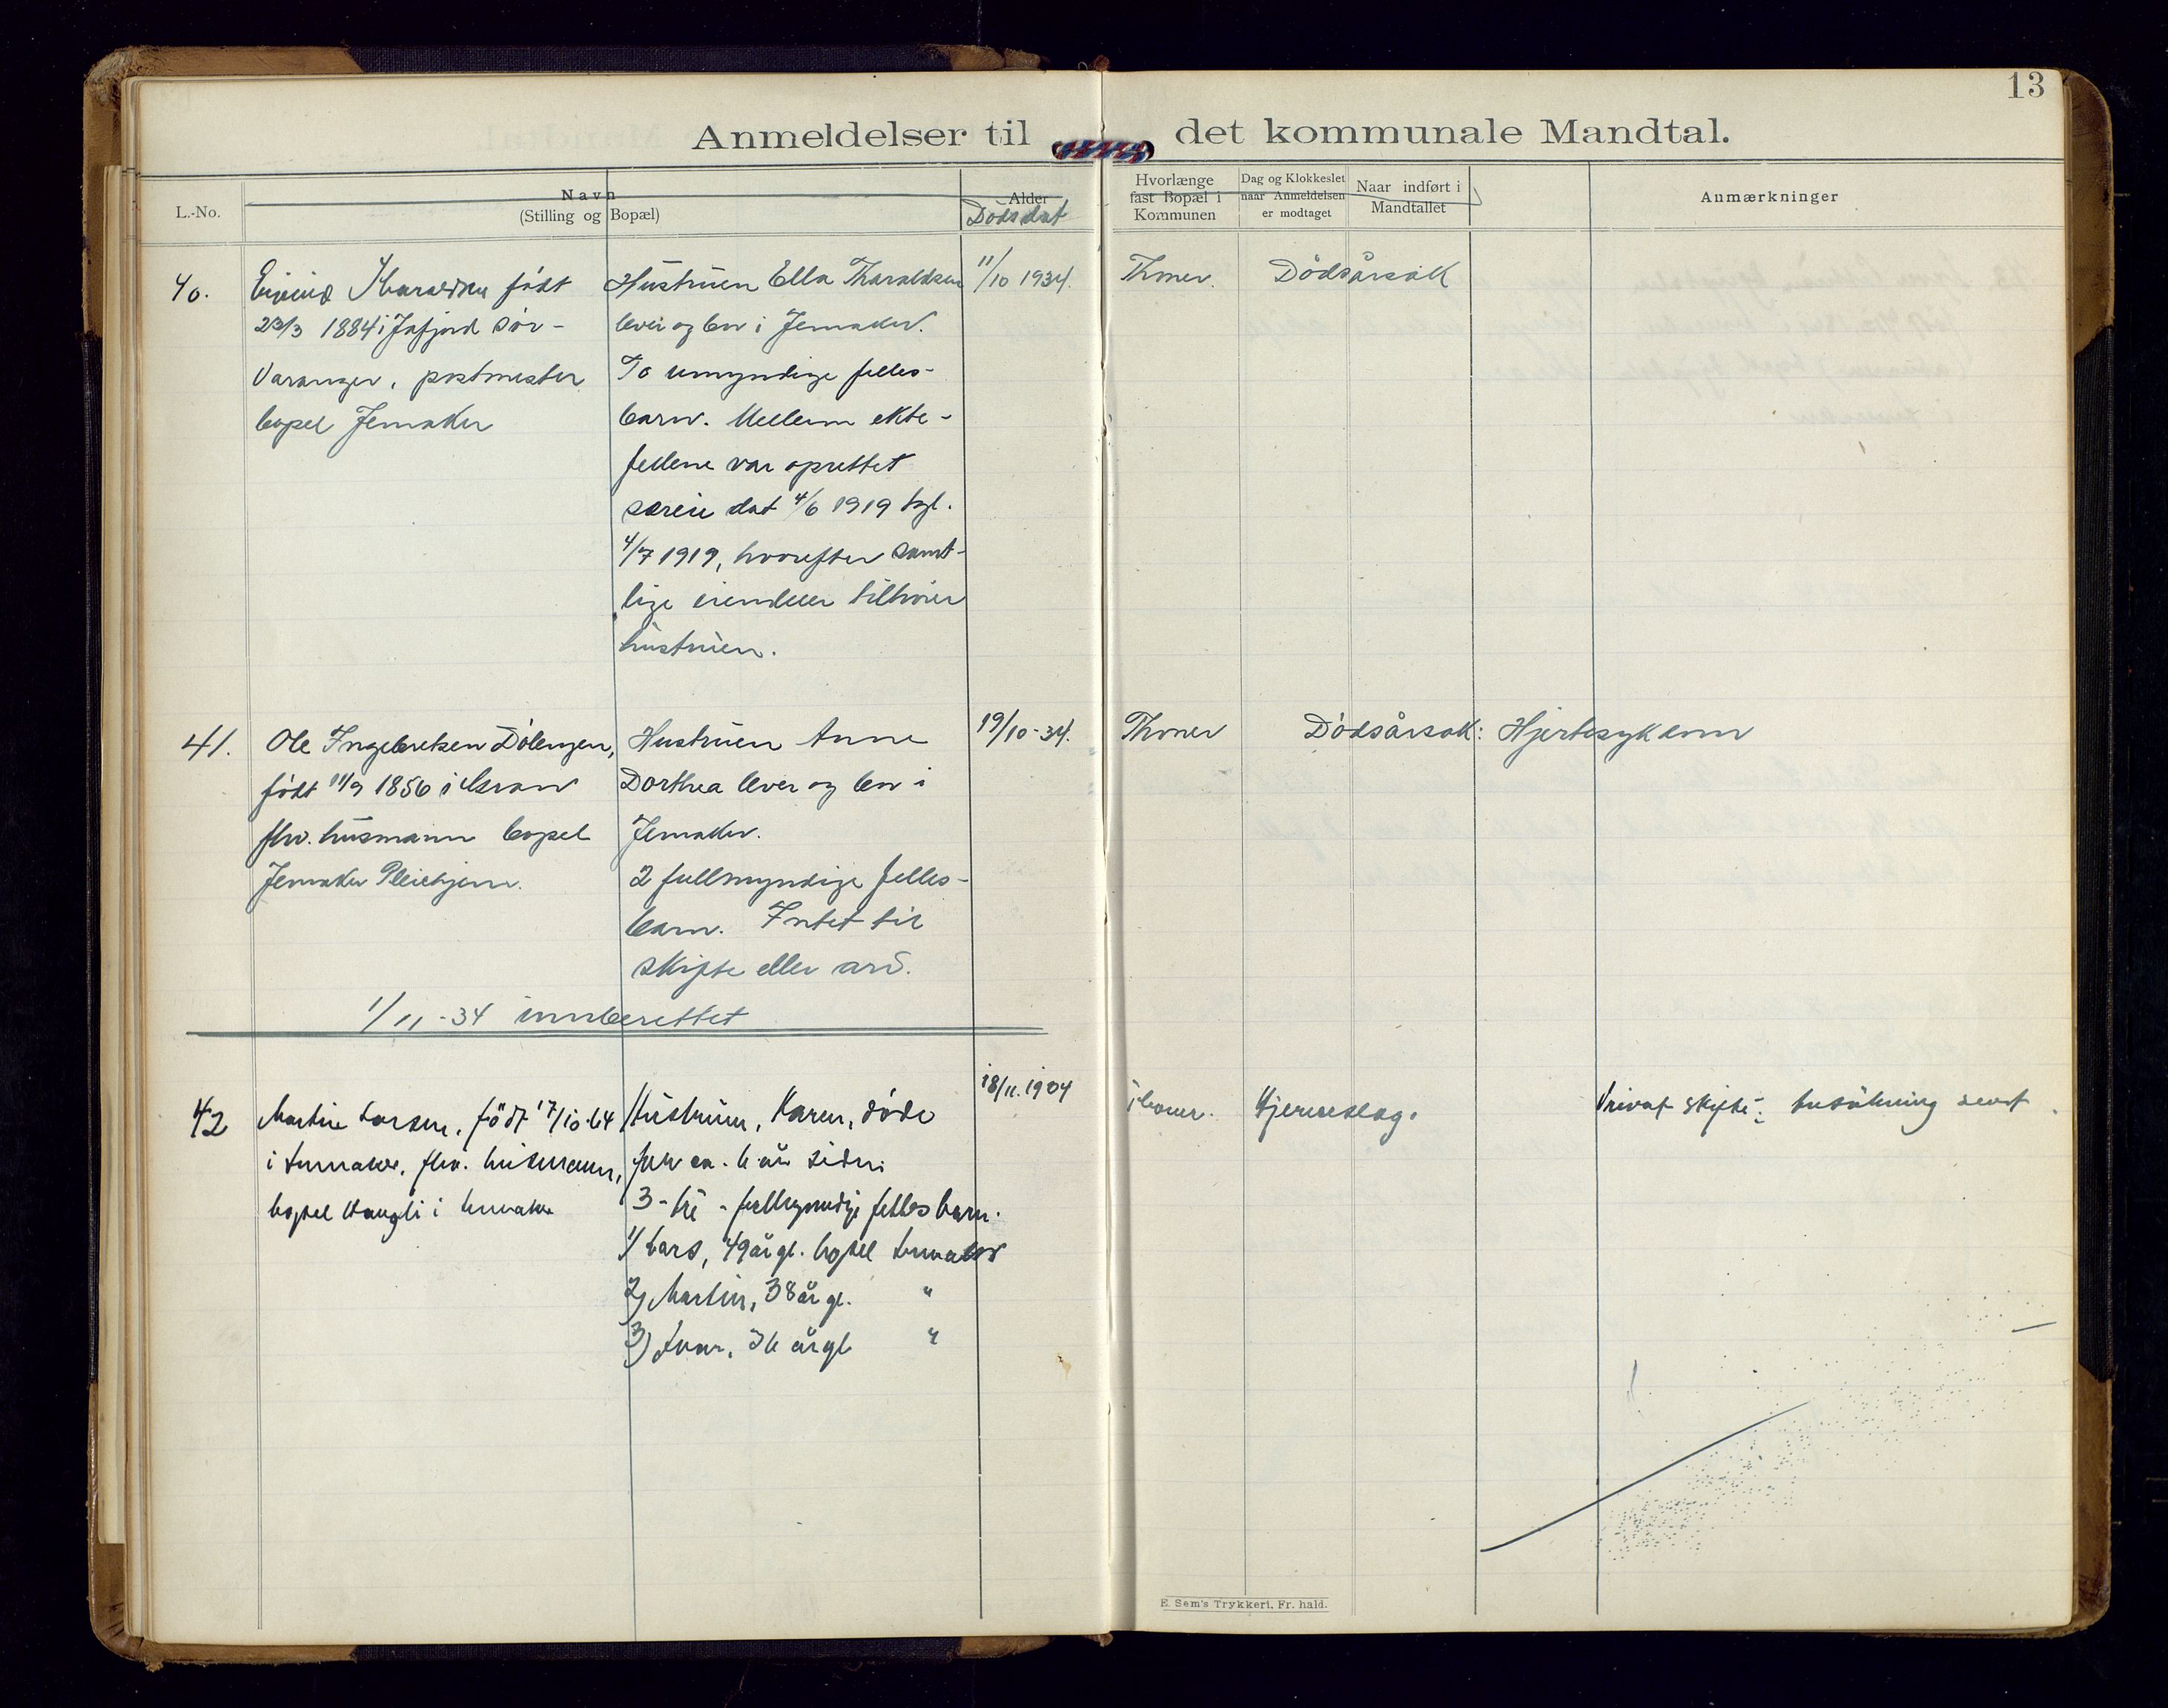 13
Anmeldelser til det kommunale Mandtal.
L.-No.
Navn
(Stilling og Bopæl)
Alder
Dödsdat
Hvorlænge
fast Bopæl i
Kommunen
Dag og Klokkeslet
naar Anmeldelsen
er modtaget
Naar indført i
Mandtallet
Anmærkninger
40.
Eivind Tharaldsen födt
23/3 1884 i Jafjord Sör-
Varanger, postmester
bopel Jevnaker
Hustruen Ella Tharaldsen
lever og bor i Jevnaker.
To umyndige felles-
barn. Mellem ekte-
fellene var oprettet
særeie dat 4/6 1919 tgl.
4/7 1919, hvorefter samt-
lige eiendeler tilhörer
hustruen.
11/10 1934.
Thorer.
Dödsårsak
41.
Ole Ingebretsen Dölengen,
födt 11/9 1856 i Gran
fhv. husmann bopel
Jevnaker Pleiehjem.
Hustruen Anne
Dorthea lever og bor i
Jevnaker.
2 fullmyndige felles-
barn. Intet til
skifte eller arv.
19/10-34.
Thorer
Dödsårsak: Hjertesykdom
1/11-34 innberettet
42
Martin Larsen, födt 17/10-64
i Jevnaker, fhv. husmann,
bopel Haugli i Jevnaker
Hustruen, Karen, döde
for ca. 6 år siden
3 - tre - fullmyndige felles barn.
1) Lars, 49 år gl. bopel Jevnaker
2) Martin, 38 år gl. "
3) Ivar, 36 år gl "
18/11.1934
Hjerneslag.
Privat skifte;
E. Sem's Trykkeri, Fr. hald.